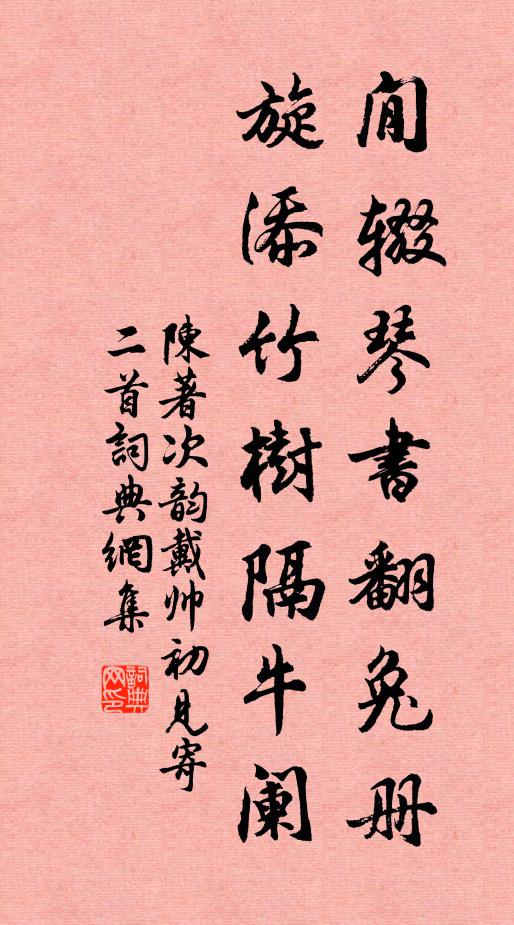 閒辍琴書翻兔册
旋添竹樹隔牛阑
陳著次韵戴帅初見寄
二首詞典網集
詞典
网印